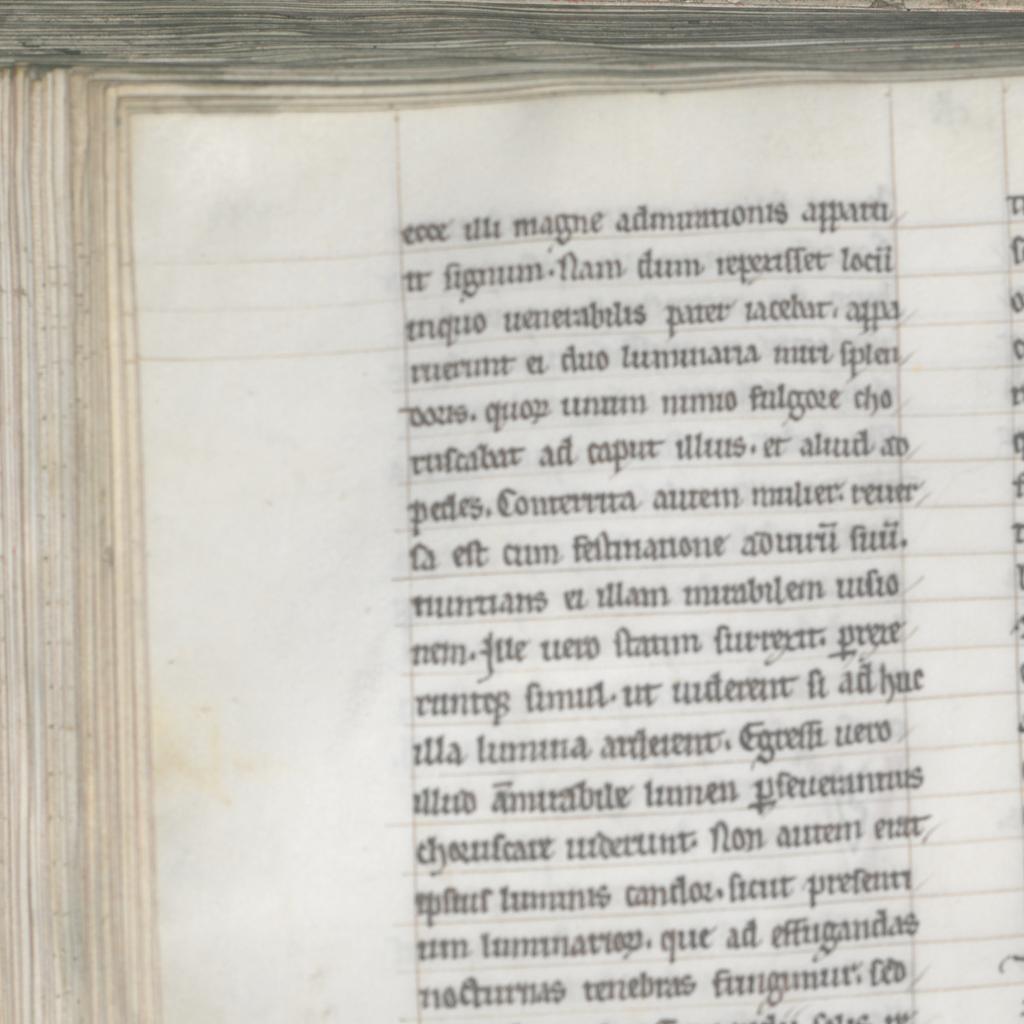 ecce illi magne admirationis apparu
it signum. Nam dum reperisset locū
inquo uenerabilis pater iacebat. appa
ruerunt ei duo luminaria miri splen
doris. quoꝝ unum nimio fulgore cho
ruscabat ad caput illius. et aliud ad
pedes. Conterrita autem mulier. reuer
sa est cum festinatione aduirū suū.
nuntians ei illam mirabilem uisio
nem. Ille uero statim surrexit. ꝑrexe
runtqꝫ simul. ut uiderent si ad huc
illa lumina arderent. Egressi uero
illud āmirabile lumen ꝑseuerantius
choruscare uiderunt. Non autem erat
ipsius luminis candor. sicut presenti
um luminarioꝝ. que ad effugandas
nocturnas tenebras funguntur. sed